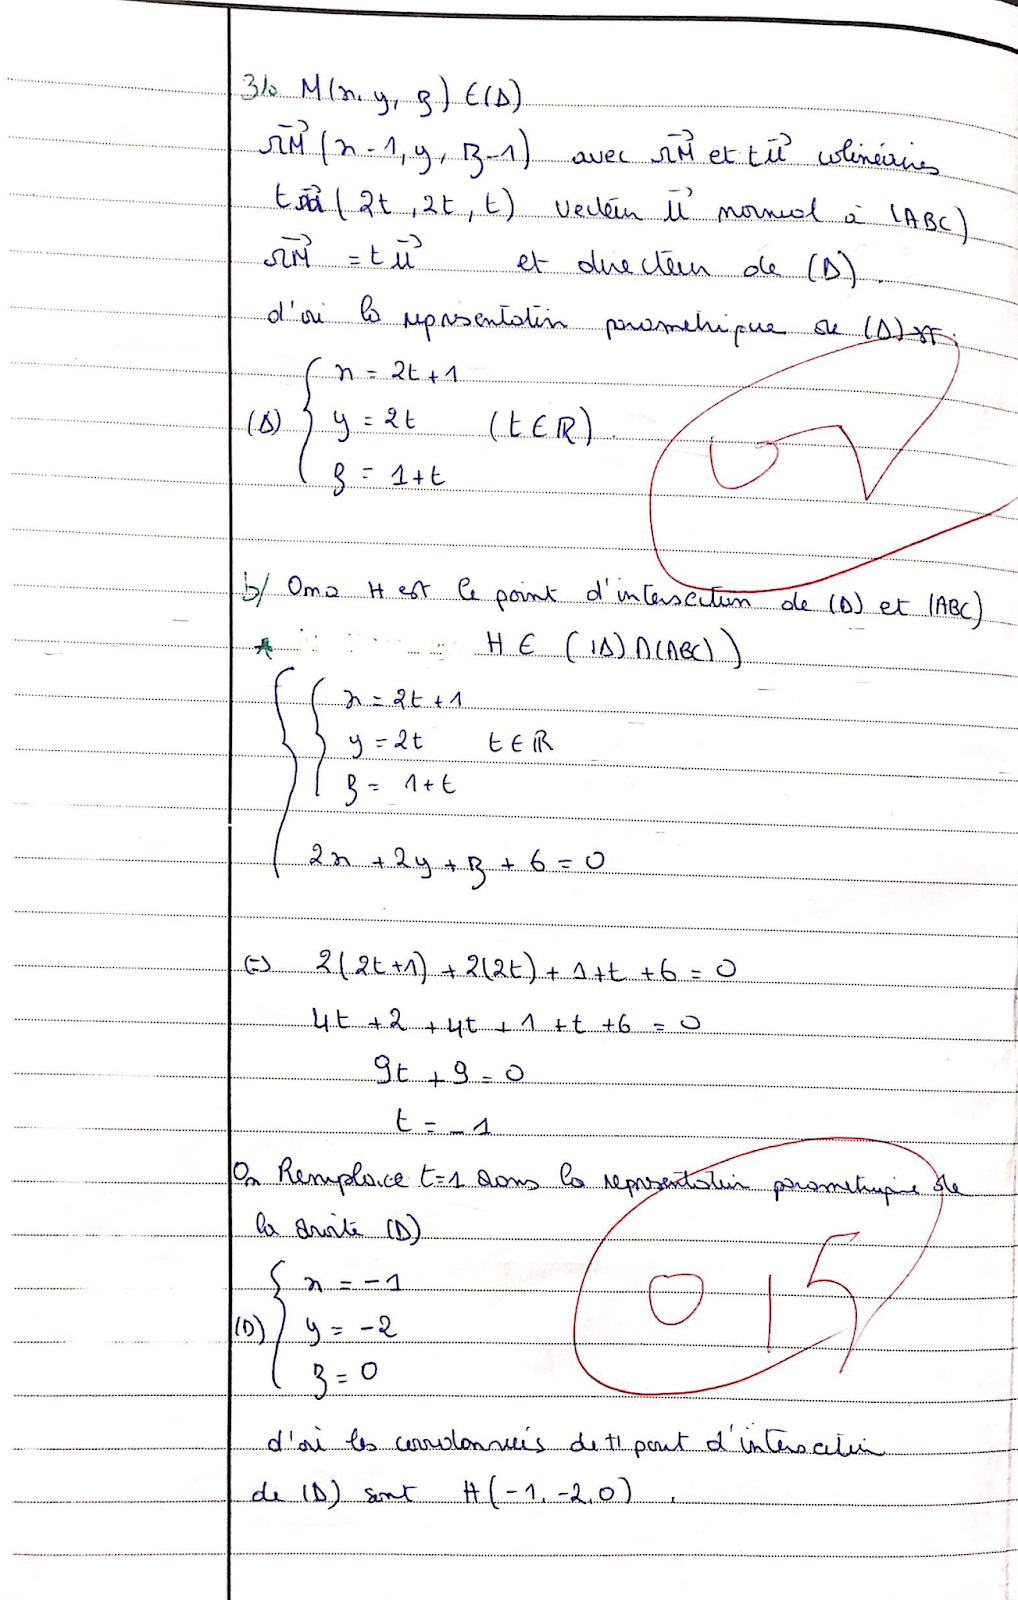 3/a M(x, y, z) ∈(Δ)
ΩM⃗ (x-1, y, z-1) avec ΩM⃗ et tu⃗ colinéaires
tu⃗ (2t, 2t, t) vecteur u⃗ normal à (ABC)
ΩM⃗ = tu⃗ et directeur de (Δ).
d'où la représentation paramétrique de (Δ) est:
(Δ) { x = 2t+1
y = 2t (t∈ℝ).
z = 1+t
b/ On a H est le point d'intersection de (Δ) et (ABC)
* H ∈ ((Δ)∩(ABC))
{ { x = 2t+1
y = 2t t∈ℝ
z = 1+t
2x + 2y + z + 6 = 0
⇔ 2(2t+1) + 2(2t) + 1+t +6 = 0
4t +2 +4t + 1 +t +6 = 0
9t + 9 = 0
t = -1
0,5
On Remplace t=1 dans la représentation paramétrique de
la droite (Δ)
(Δ) { x = -1
y = -2
z = 0
d'où les coordonnées de H point d'intersection
de (Δ) sont H(-1, -2, 0).